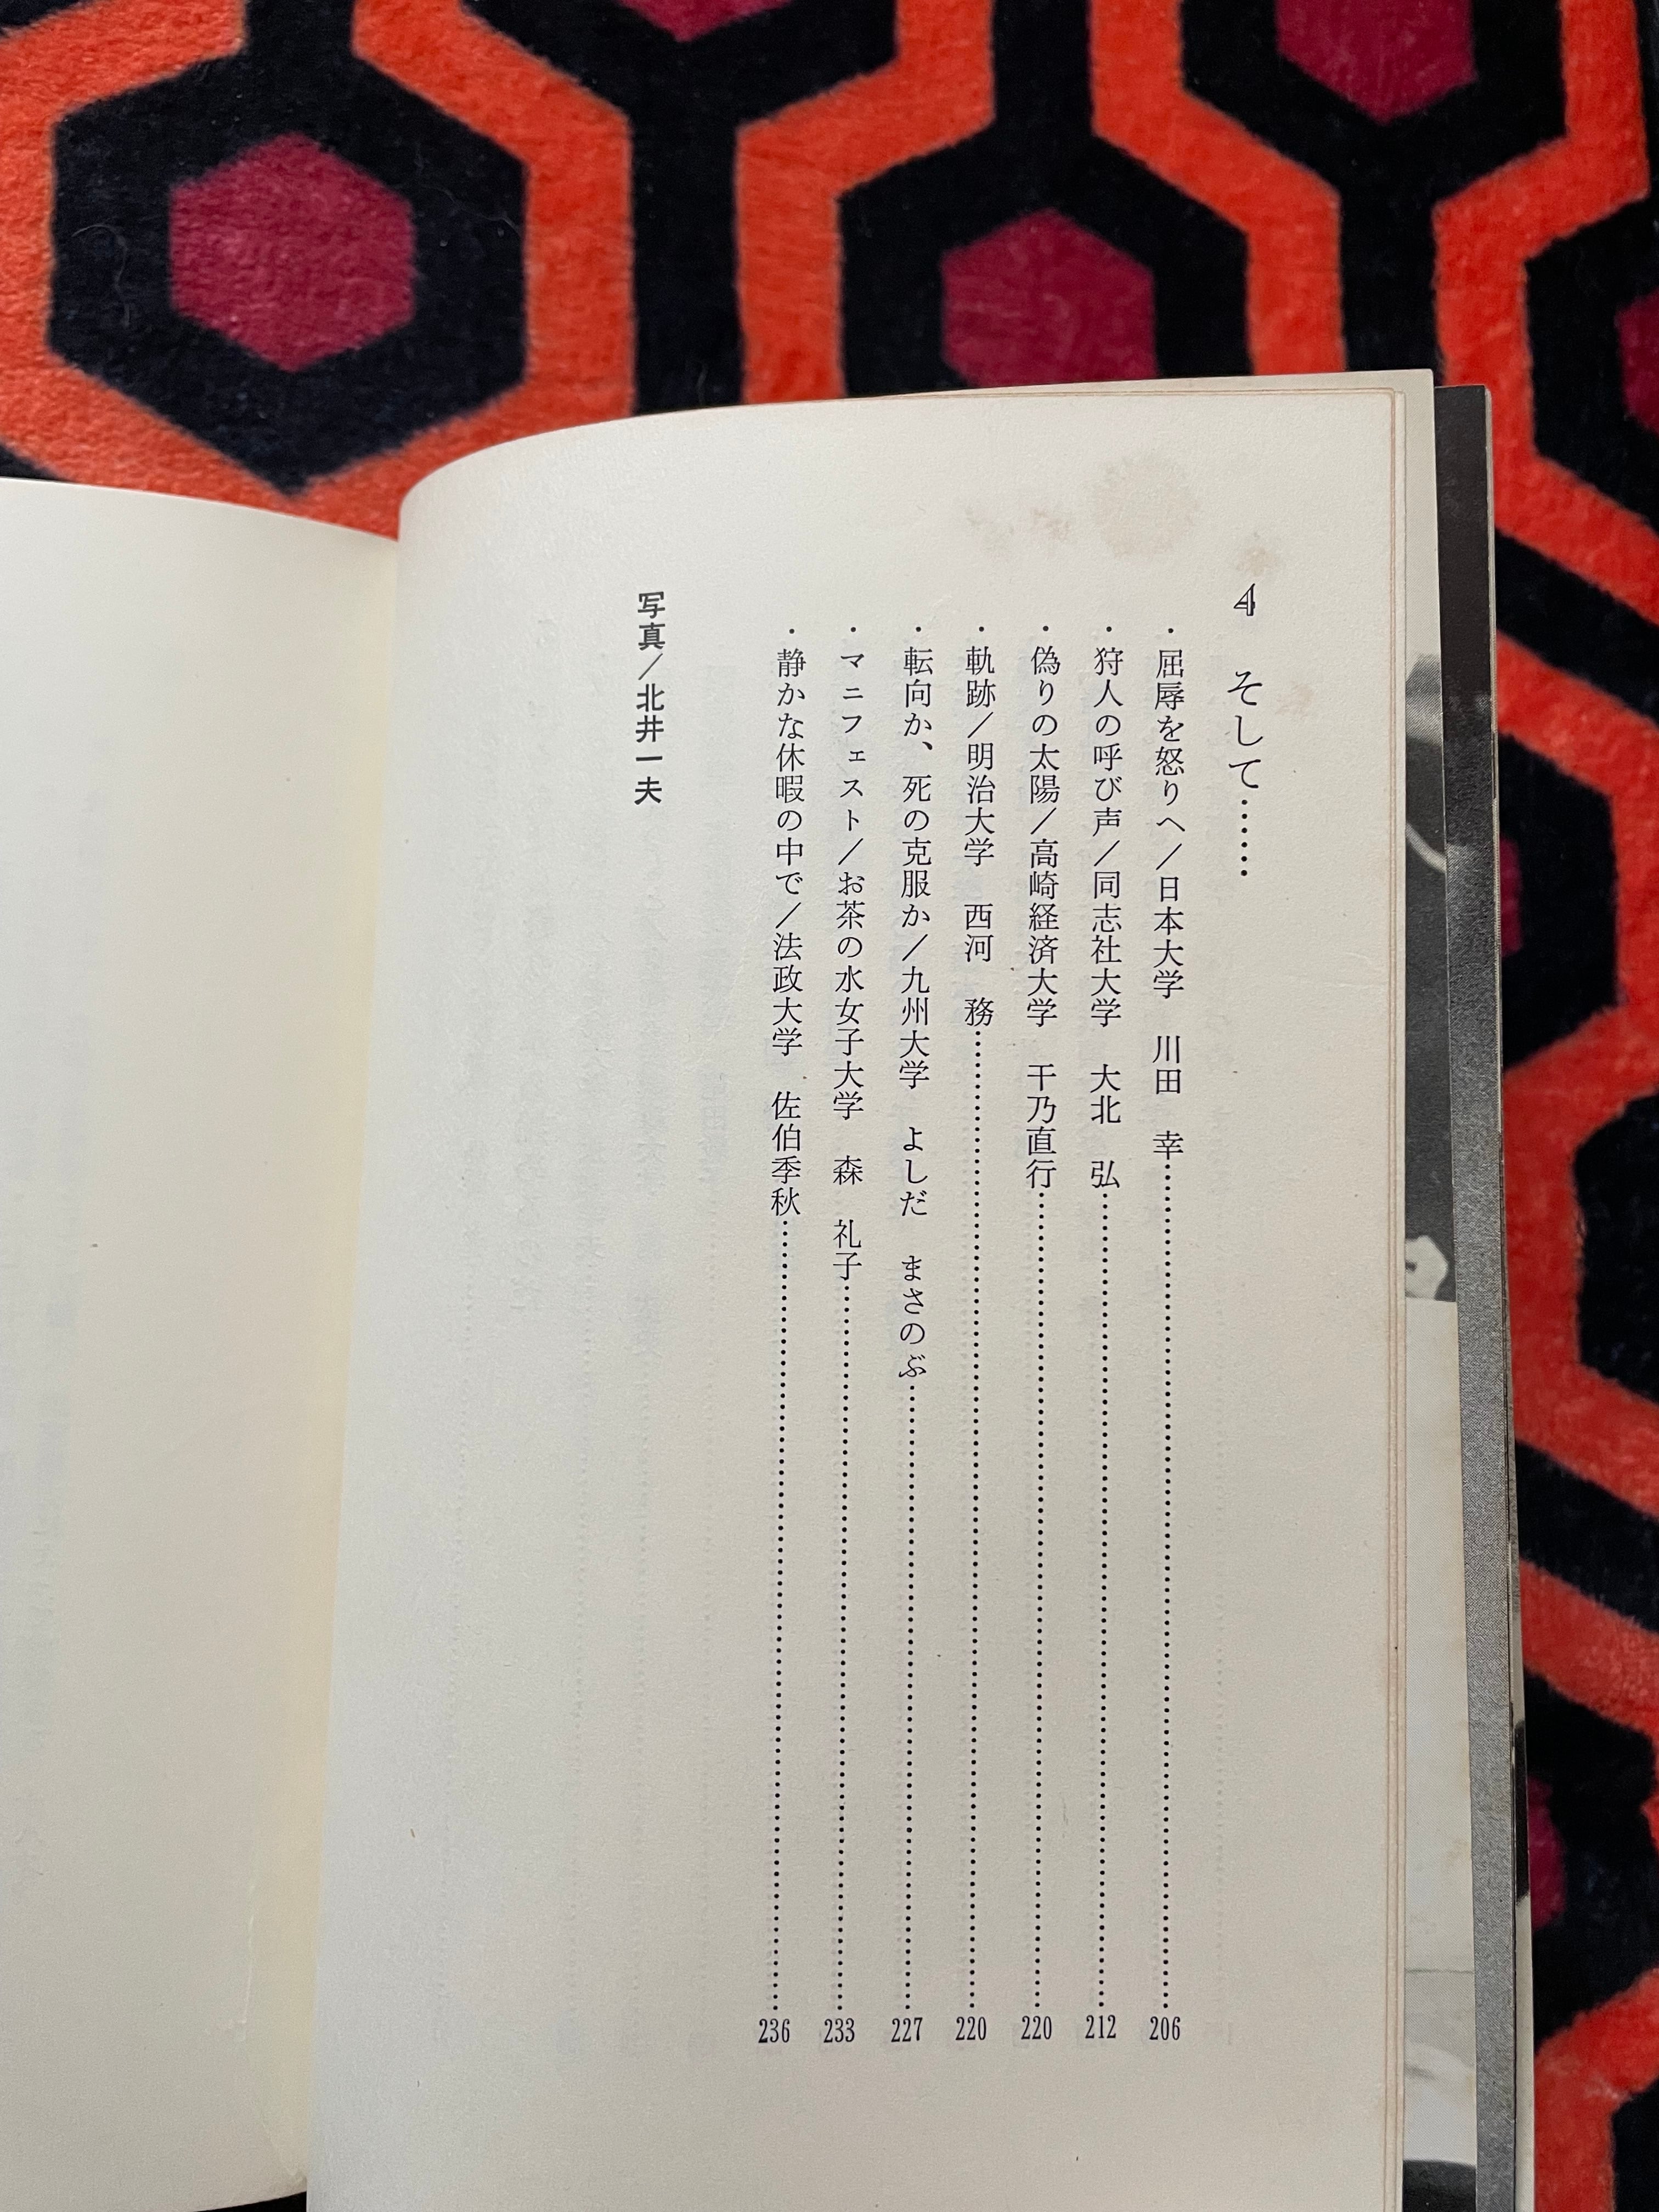 4　そして……
・屈辱を怒りへ／日本大学　川田　幸……206
・狩人の呼び声／同志社大学　大北　弘……212
・偽りの太陽／高崎経済大学　干乃直行……220
・軌跡／明治大学　西河　務……220
・転向か、死の克服か／九州大学　よしだ　まさのぶ……227
・マニフェスト／お茶の水女子大学　森　礼子……233
・静かな休暇の中で／法政大学　佐伯季秋……236
写真／北井一夫